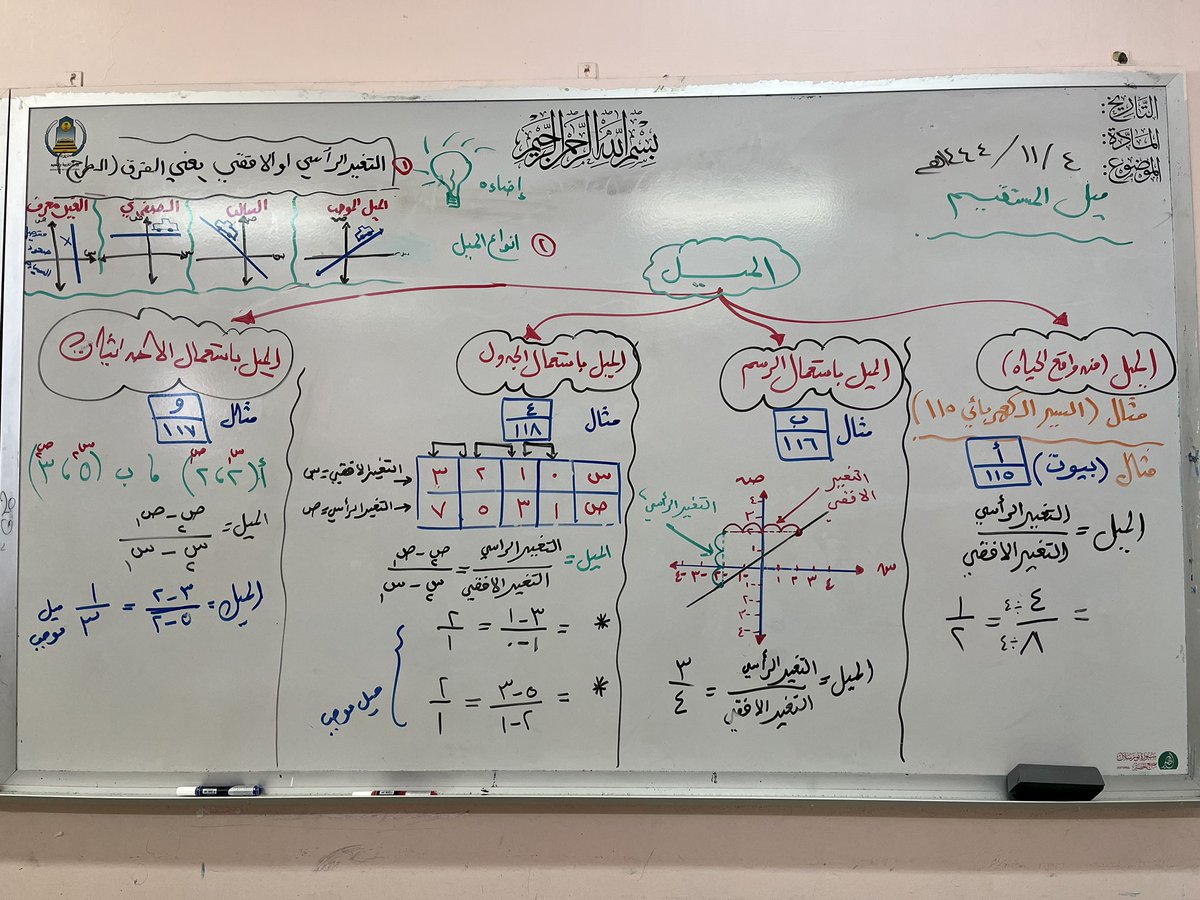 بسم الله الرحمن الرحيم
التاريخ: ٤ / ١١ / ١٤٤٤هـ
المادة:
الموضوع: ميل المستقيم
إضاءه
١ التغير الرأسي او الافقي يعني الفرق (الطرح)
٢ انواع الميل
الميل الموجب
السالب
الصفري
الغير معرف
الميل
الميل (من واقع الحياه)
مثال (السير الكهربائي ١١٥)
مثال (بيوت) أ ١١٥
الميل = التغير الرأسي / التغير الافقي
= ٤ ÷ ٤ / ٨ ÷ ٤ = ١ / ٢
الميل باستعمال الرسم
مثال ب ١١٦
التغيير الافقي
التغير الرأسي
ص
س
٤ ٣ ٢ ١
-١ -٢ -٣ -٤
الميل = التغير الرأسي / التغير الافقي = ٣ / ٤
الميل باستعمال الجدول
مثال ٤ ١١٨
س ٠ ١ ٢ ٣ ← التغير الافقي = س
ص ١ ٣ ٥ ٧ ← التغير الرأسي = ص
الميل = التغير الرأسي / التغير الافقي = ص٢ - ص١ / س٢ - س١
* = ٣ - ١ / ١ - ٠ = ٢ / ١
* = ٥ - ٣ / ٢ - ١ = ٢ / ١
ميل موجب
الميل باستعمال الاحداثيات
مثال و ١١٧
أ (٢ ، ٢) ، ب (٥ ، ٣)
س١ ص١ س٢ ص٢
الميل = ص٢ - ص١ / س٢ - س١
الميل = ٣ - ٢ / ٥ - ٢ = ١ / ٣ ميل موجب